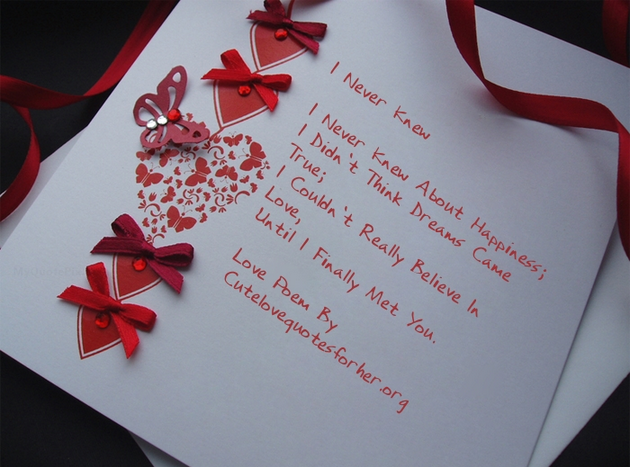 I Never Knew
I Never Knew About Happiness;
I Didn't Think Dreams Came
True;
I Couldn't Really Believe In
Love,
Until I Finally Met You.
Love Poem By
Cutelovequotesforher.org